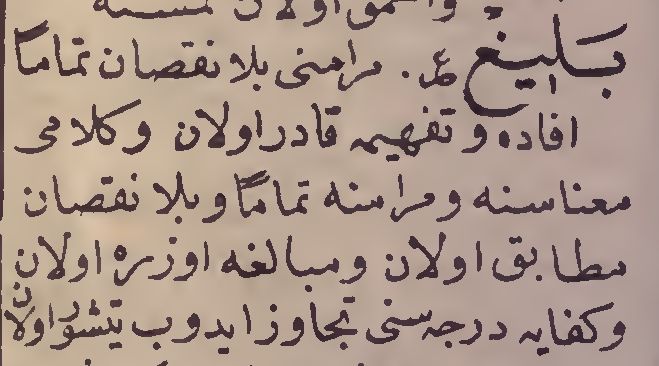 واحمق اولان كمسنه
بَلِيغْ ع. مرامنى بلا نقصان تماماً
افاده و تفهيمه قادر اولان وكلامى
معناسنه ومرامنه تماماً وبلا نقصان
مطابق اولان ومبالغه اوزره اولان
وكفايه درجه‌سنى تجاوز ايدوب يتشور اولان